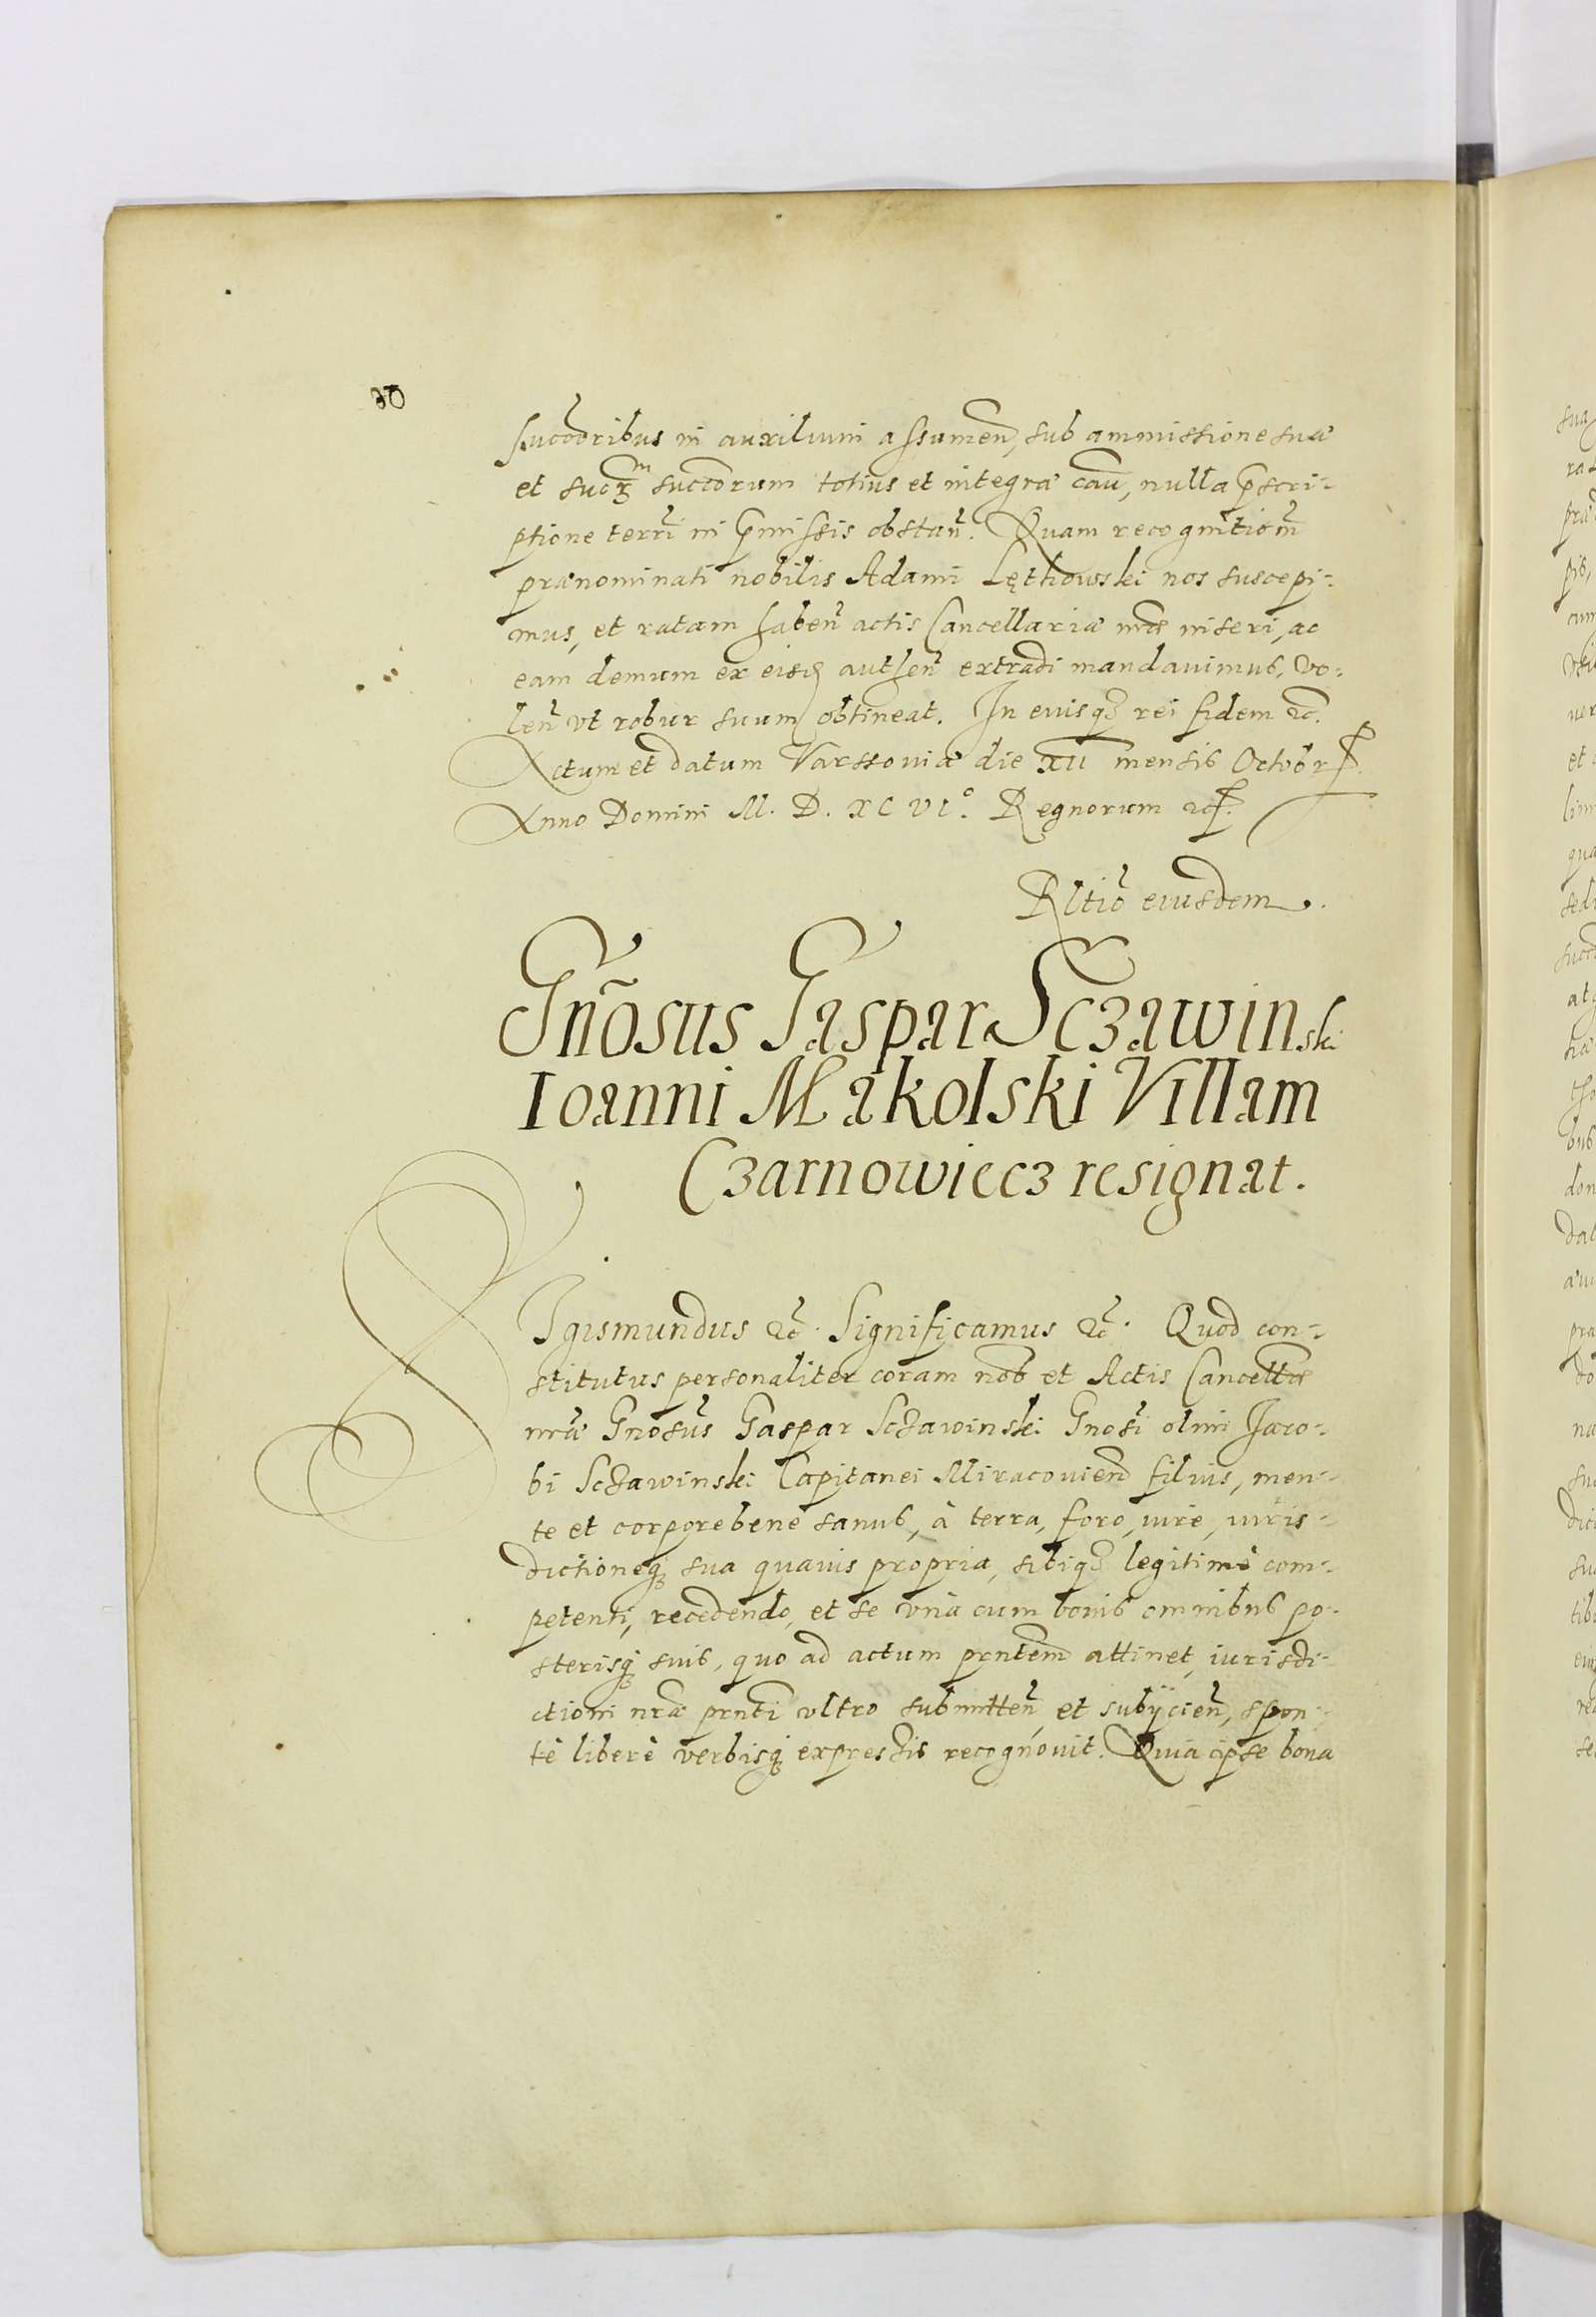 30
succōribus in auxilium assumeñ, sub ammissione suæ
et suorꝫ succōrum totius et integræ cau̅, nulla p̄scri-
ptione terr̃i in p̄missis obstañ. Quam recognitiom̃
prænominati nobilis Adami Lęthowski nos suscepi-
mus, et ratam habeñ actis Cancellariæ nr̃æ inseri, ac
eam demum ex eisd authen̄ extradi mandauimus, vo-
leñ vt robur suum obtineat. In cuius qꝫ rei fidem ꝛc̃.
Actum et datum Varssouiæ die XII mensis Octobr.
Anno Domini M. D. XC VI.° Regnorum ꝛc.
Rltiõ eiusdem.
Gnõsus Gaspar Sczawinski
Ioanni Makolski Villam
Czarnowiecz resignat.
Sigismundus ꝛc̃. Significamus ꝛc̃. Quod con-
stitutus personaliter coram nob̄ et Actis Cancellr̄æ
nr̃æ Gnosũs Gaspar Sczawinski Gnosĩ olim Jaco-
bi Sczawinski Capitanei Miracouien̄ filius, men-
te et corpore bene sanus, à terra, foro, iure, iuris-
dictioneqꝫ sua quauis propria, sibiqꝫ legitimè com-
petenti, recedendo, et se vnà cum bonis omnibus po-
sterisqꝫ suis, quo ad actum prn̄tem attinet, iurisdi-
ctioni nr̃æ prn̄ti vltro submitteñ, et subijcieñ, spon-
tè liberè verbisqꝫ expressis recognouit. Quia ipse bona